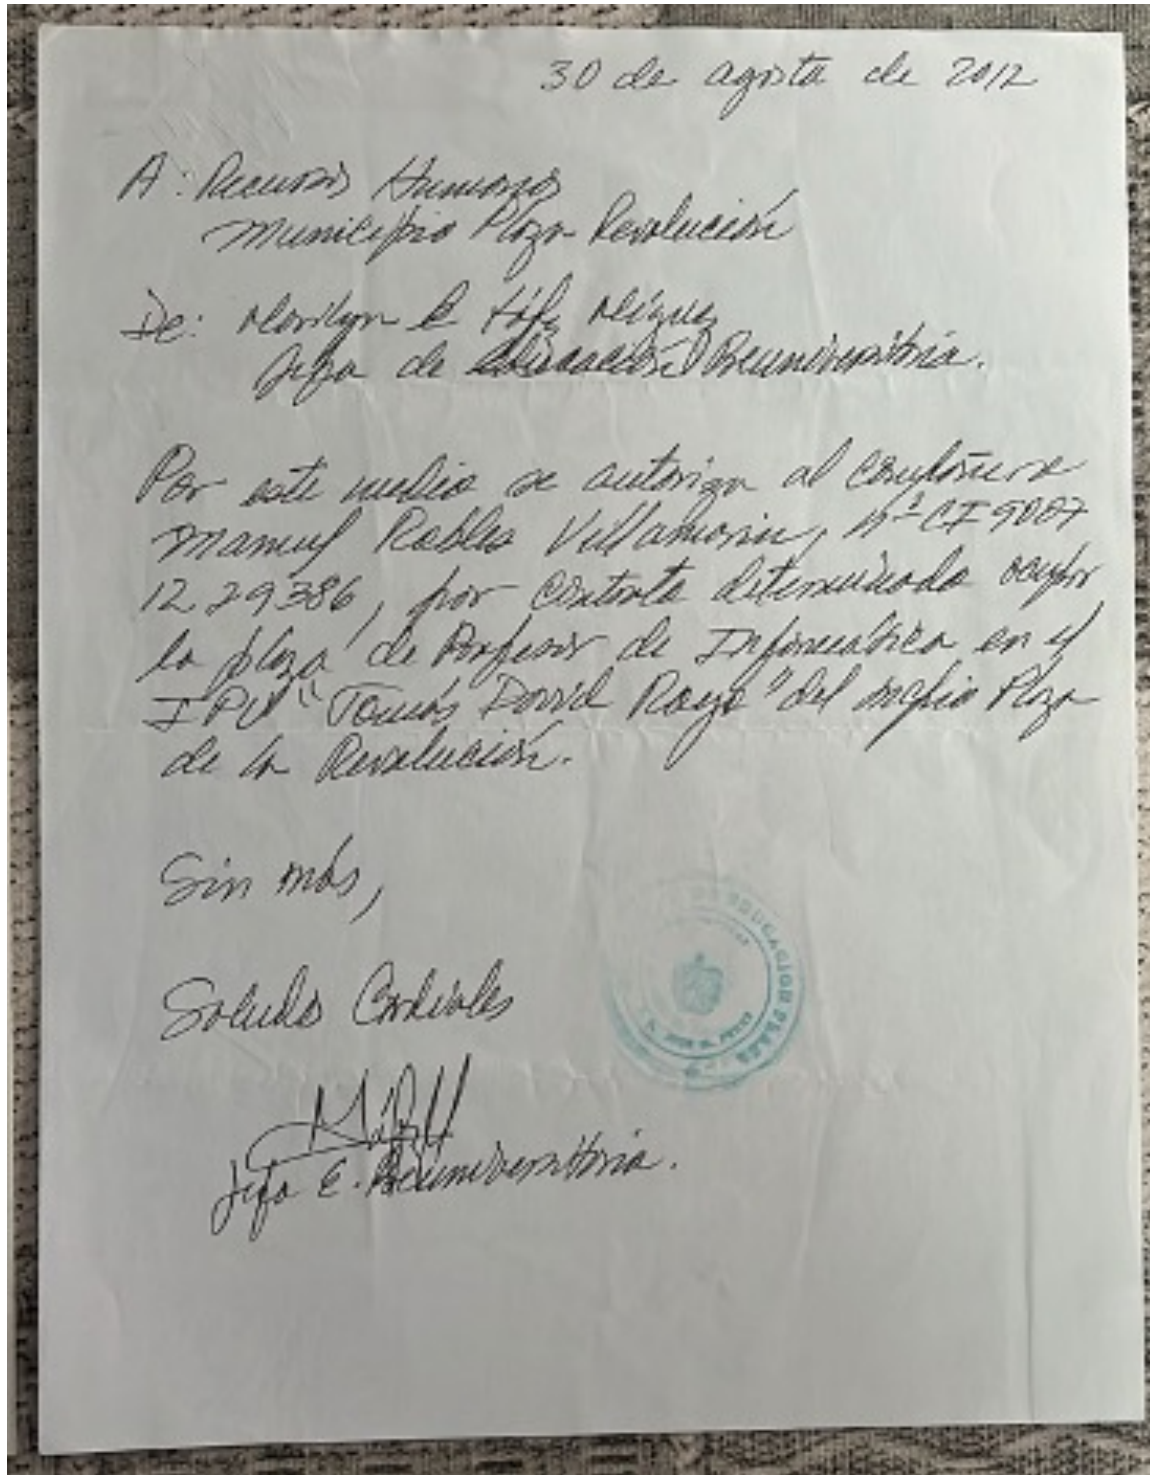 30 de agosto de 2012
A: Recursos Humanos
Municipio Plaza Revolución
De: Marilyn
Jefa de Educación Preuniversitaria.
Por este medio se autoriza al compañero
Manuel Robles Villamarin, nº CI 9007
12 29386, por contrato determinado ocupar
la plaza de Profesor de Informática en el
IPU "Tomás David Royo" del mcpio Plaza
de la Revolución.
Sin más,
Saludos Cordiales
Jefa E. Preuniversitaria.
EDUCACION PLAZA